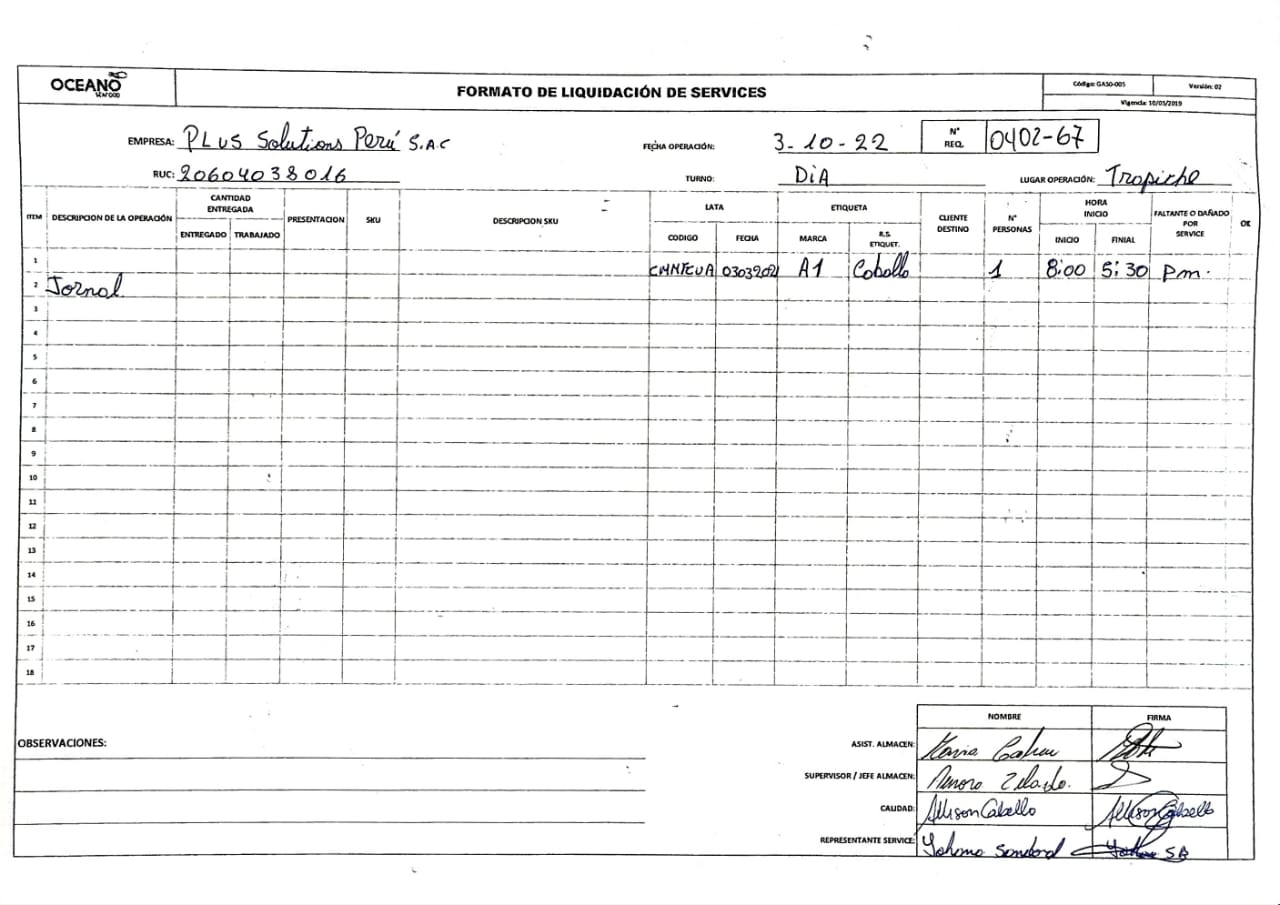 OCEANO
SEAFOOD
FORMATO DE LIQUIDACIÓN DE SERVICES
Código: GASO-005
Versión: 02
Vigencia: 10/05/2019
EMPRESA: PLUS Solutions Perú S.A.C
FECHA OPERACIÓN: 3-10-22
N° REQ. 0402-67
RUC: 20604038016
TURNO: DIA
LUGAR OPERACIÓN: Tropiche
ITEM DESCRIPCION DE LA OPERACIÓN CANTIDAD ENTREGADA PRESENTACION SKU DESCRIPCION SKU LATA ETIQUETA CLIENTE DESTINO N° PERSONAS HORA INICIO FALTANTE O DAÑADO POR SERVICE OK
ENTREGADO TRABAJADO CODIGO FECHA MARCA R.S. ETIQUET. INICIO FINIAL
1 0303202 A1 1 8:00 5:30 pm.
2 Jornal
3
4
5
6
7
8
9
10
11
12
13
14
15
16
17
18
OBSERVACIONES:
NOMBRE FIRMA
ASIST. ALMACEN:
SUPERVISOR / JEFE ALMACEN:
CALIDAD: Allison Cabello Allison Cabello
REPRESENTANTE SERVICE: